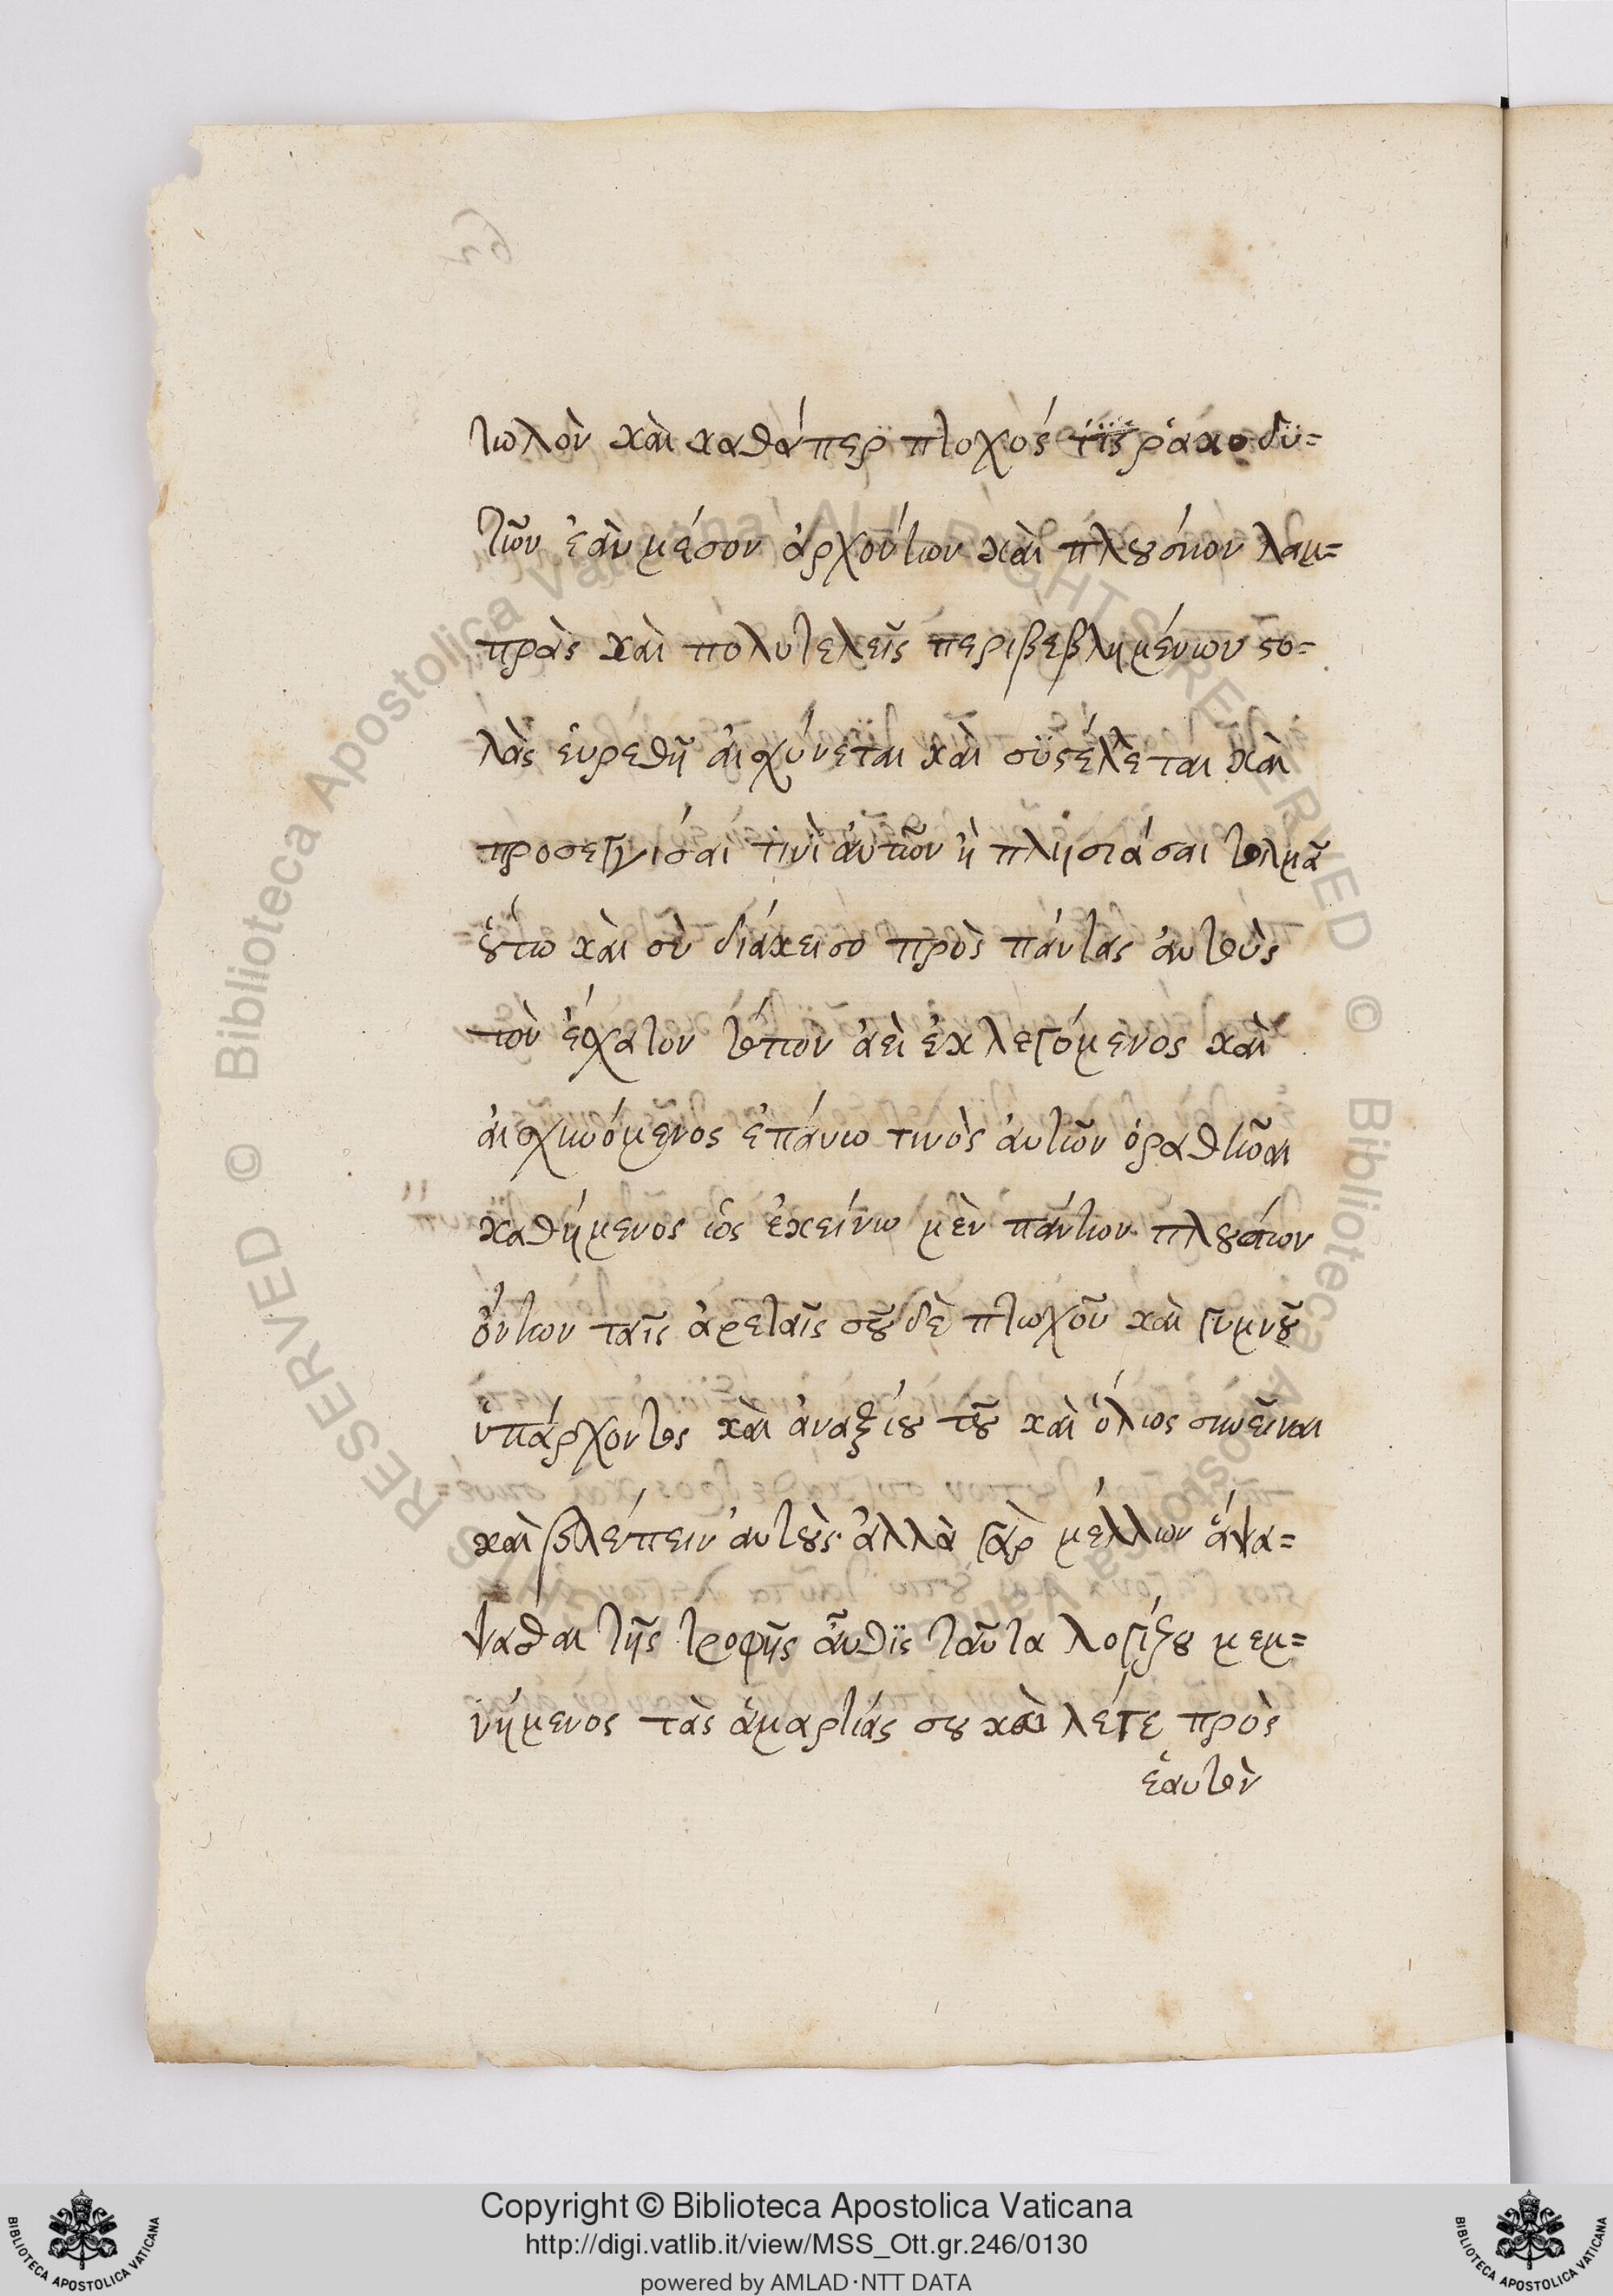 τωλὸν καὶ καθάπερ πτοχός τϊς ῥάκοδϋ=
τῶν ἐὰν μέσον ἀρχόντων καὶ πλȣσίων λαμ=
πρὰς καὶ πολυτελεῖς περιβεβλημένων ϛο=
λὰς εὑρεθῇ αἰσχύνεται καὶ σϋϛέλλεται καὶ
προσεγγισαι τινὶ αὐτῶν ἢ πλησιάσαι τολμᾶ
ȣ̔́τω καὶ σὺ διάκεισο πρὸς πάντας αὐτοὺς
τὸν ἔσχατον τόπον ἀεὶ ἐκλεγόμενος καὶ
αἰσχυνόμενος ἐπάνω τινὸς αὐτῶν ὁραθῆναι
καθήμενος ὡς ἐκείνω μὲν πάντων πλȣσίων
ὄντων ταῖς ἀρεταῖς σȣ͂ δὲ πτωχοῦ καὶ γυμνȣ͂
ὑπάρχοντος καὶ ἀναξίȣ τȣ͂ καὶ ὅλως συνεῖναι
καὶ βλέπειν αὐτȣ̀ς· ἀλλὰ γὰρ μέλλων ἅψα=
ψασθαι τῆς τροφῆς αὖθϊς ταῦτα λογίζȣ μεμ=
νήμενος τὰς ἁμαρτίάς σȣ καὶ λέγε πρὸς
ἑαυτὸν
Copyright © Biblioteca Apostolica Vaticana
http://digi.vatlib.it/view/MSS_Ott.gr.246/0130
powered by AMLAD·NTT DATA
BIBLIOTECA APOSTOLICA VATICANA
BIBLIOTECA APOSTOLICA VATICANA
© Biblioteca Apostolica Vaticana ALL RIGHTS RESERVED
© Biblioteca Apostolica Vaticana ALL RIGHTS RESERVED